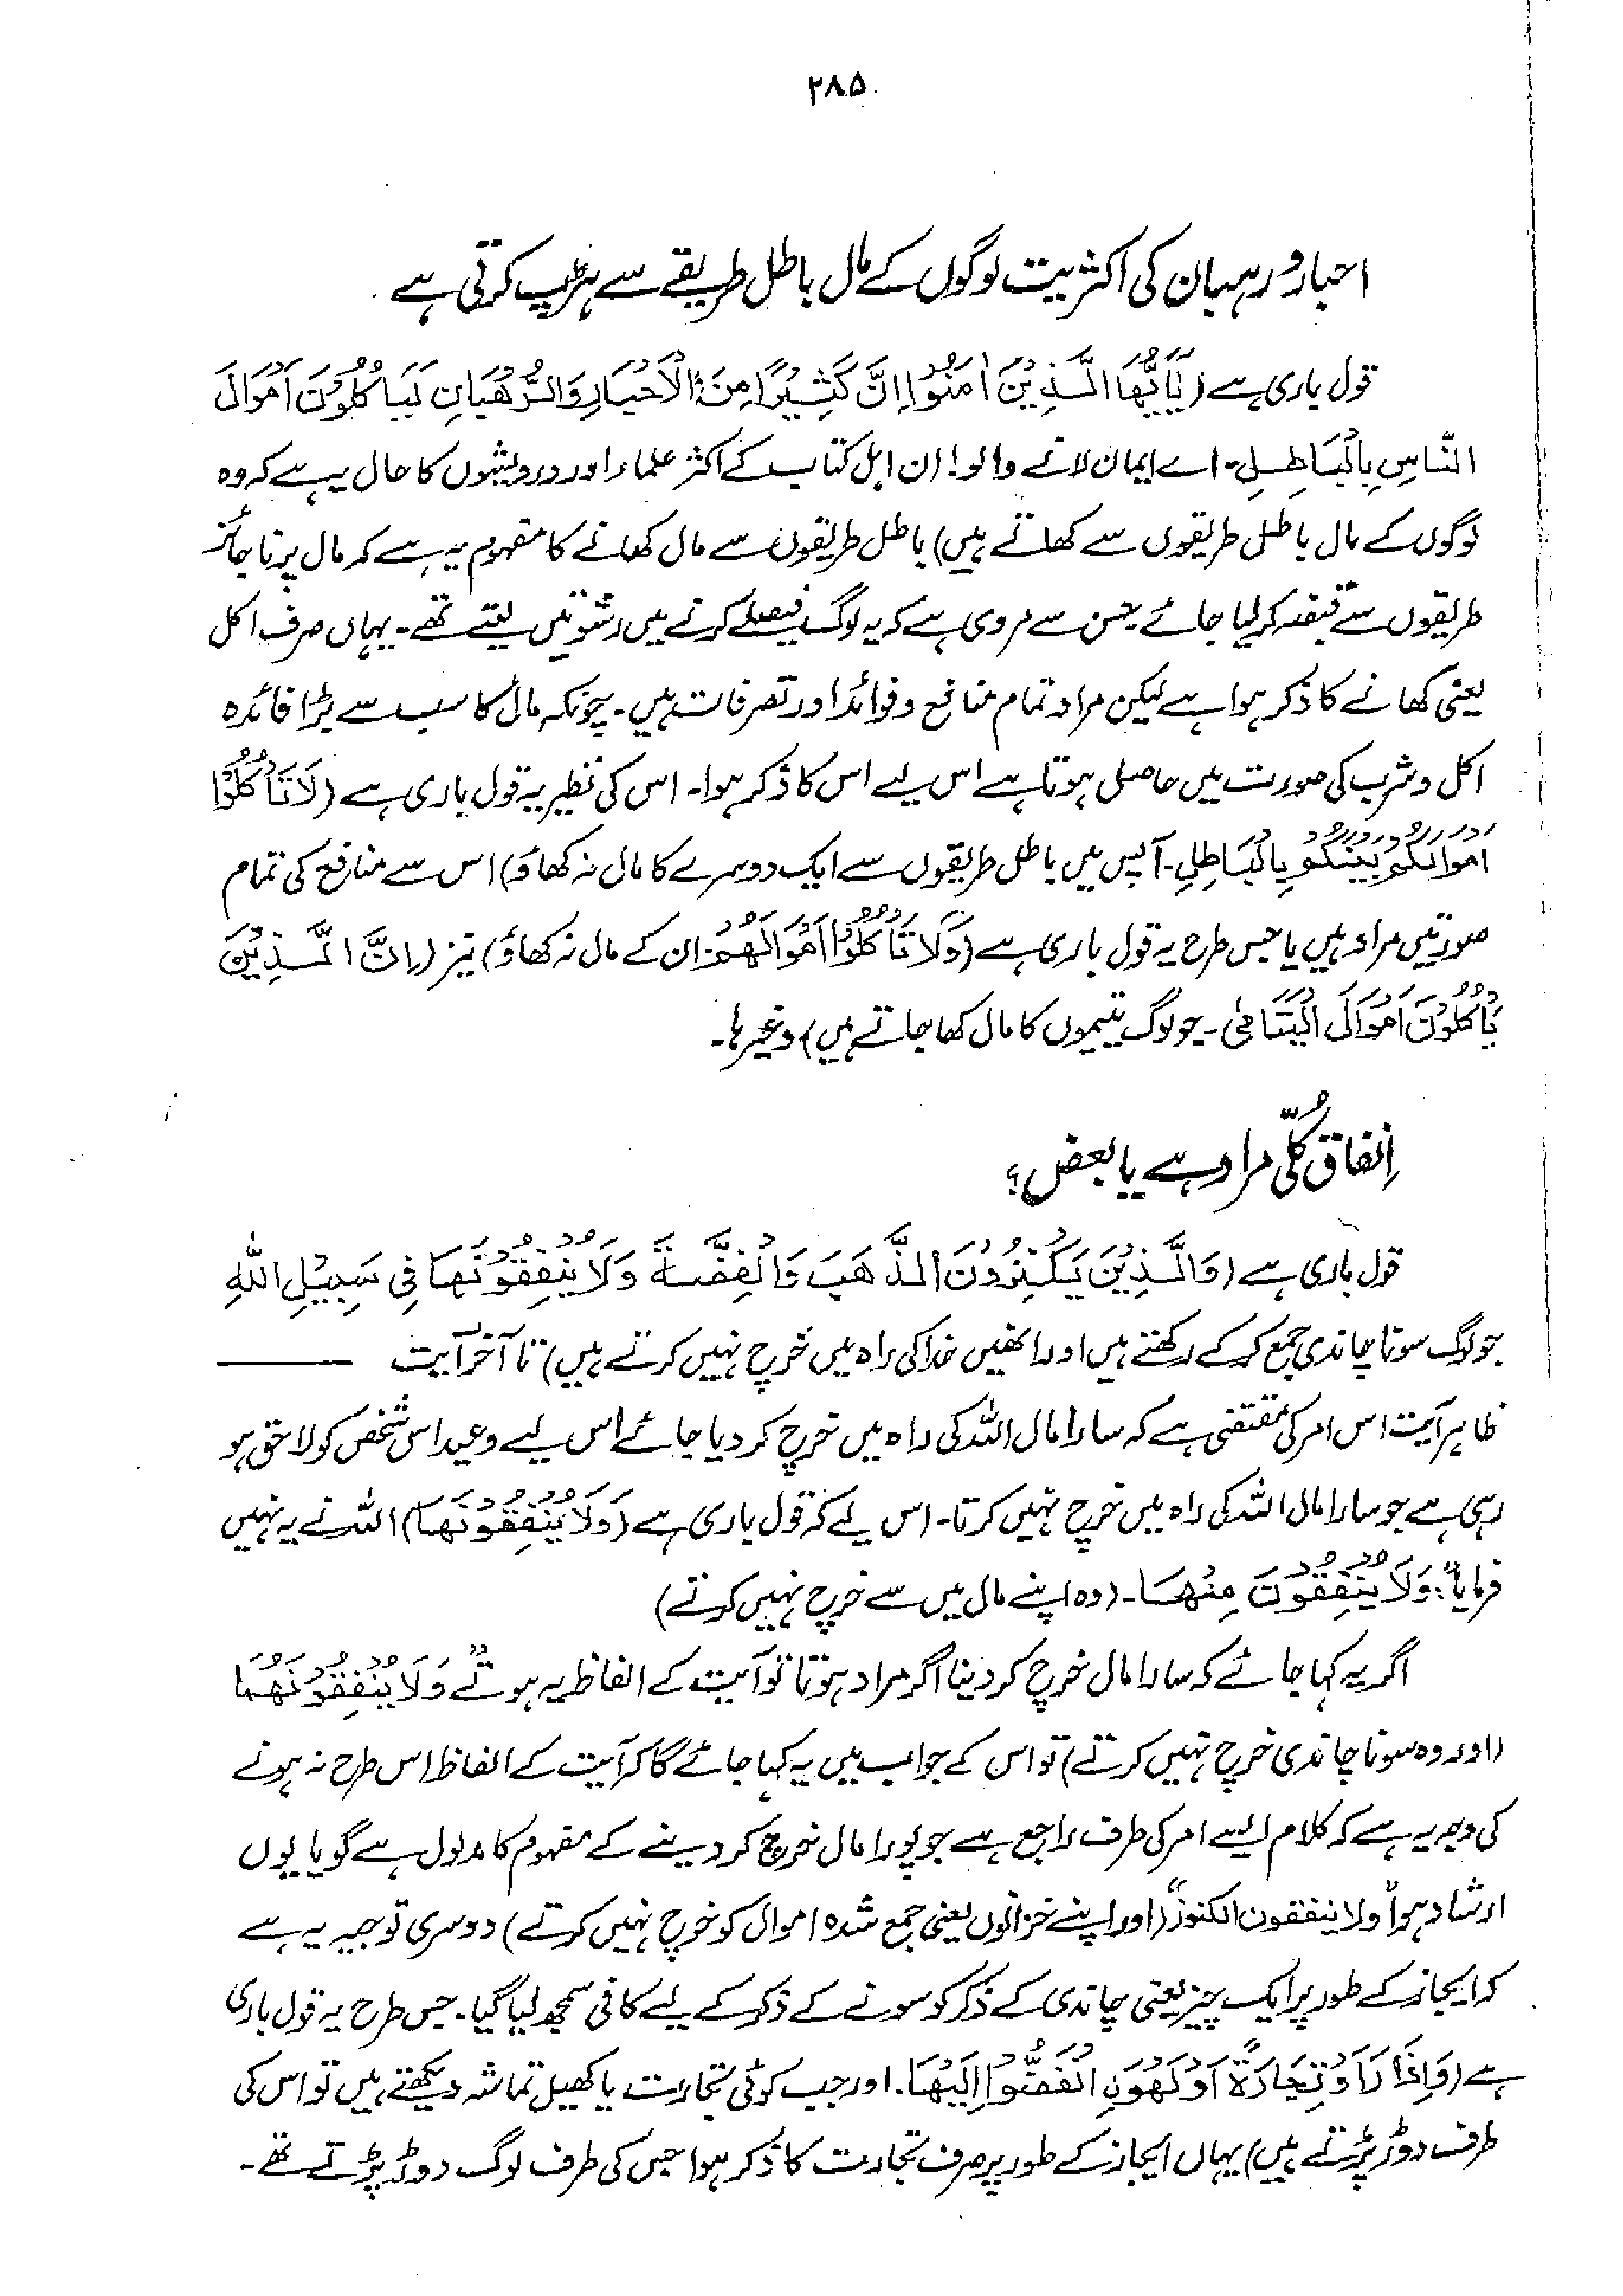 ۲۸۵
احبار و رہبان کی اکثریت لوگوں کے مال باطل طریقے سے ہڑپ کرتی ہے
قول باری ہے (یٰٓاَیُّهَا الَّذِیْنَ اٰمَنُوْا اِنَّ كَثِیْرًا مِنَ الْاَحْبَارِ وَالرُّهْبَانِ لَیَاْكُلُوْنَ اَمْوَالَ
النَّاسِ بِالْبَاطِلِ۔ اے ایمان لانے والو! ان اہل کتاب کے اکثر علماء اور درویشوں کا حال یہ ہے کہ وہ
لوگوں کے مال باطل طریقوں سے کھاتے ہیں) باطل طریقوں سے مال کھانے کا مفہوم یہ ہے کہ مال پر ناجائز
طریقوں سے قبضہ کر لیا جائے۔ حسن سے مروی ہے کہ یہ لوگ فیصلے کرنے میں رشوتیں لیتے تھے۔ یہاں صرف اکل
یعنی کھانے کا ذکر ہوا ہے لیکن مراد تمام منافع و فوائد اور تصرفات ہیں۔ چونکہ مال کا سب سے بڑا فائدہ
اکل و شرب کی صورت میں حاصل ہوتا ہے اس لیے اس کا ذکر ہوا۔ اس کی نظیر یہ قول باری ہے (لَا تَاْكُلُوْا
اَمْوَالَكُمْ بَیْنَكُمْ بِالْبَاطِلِ۔ آپس میں باطل طریقوں سے ایک دوسرے کا مال نہ کھاؤ) اس سے منافع کی تمام
صورتیں مراد ہیں یا جس طرح یہ قول باری ہے (وَلَا تَاْكُلُوْا اَمْوَالَهُمْ۔ ان کے مال نہ کھاؤ) نیز (اِنَّ الَّذِیْنَ
یَاْكُلُوْنَ اَمْوَالَ الْیَتَامٰی۔ جو لوگ یتیموں کا مال کھا جاتے ہیں) وغیرہا۔
اِنفاق کُلّی مراد ہے یا بعض؟
قول باری ہے (وَالَّذِیْنَ یَكْنِزُوْنَ الذَّهَبَ وَالْفِضَّةَ وَلَا یُنْفِقُوْنَهَا فِیْ سَبِیْلِ اللّٰهِ
جو لوگ سونا چاندی جمع کر کے رکھتے ہیں اور انھیں خدا کی راہ میں خرچ نہیں کرتے ہیں) تا آخر آیت ———
ظاہر آیت اس امر کی مقتضی ہے کہ سارا مال اللہ کی راہ میں خرچ کر دیا جائے اس لیے وعید اس شخص کو لاحق ہو
رہی ہے جو سارا مال اللہ کی راہ میں خرچ نہیں کرتا۔ اس لیے کہ قول باری ہے (وَلَا یُنْفِقُوْنَهَا) اللہ نے یہ نہیں
فرمایا "وَلَا یُنْفِقُوْنَ مِنْهَا۔ (وہ اپنے مال میں سے خرچ نہیں کرتے)
اگر یہ کہا جائے کہ سارا مال خرچ کر دینا اگر مراد ہوتا تو آیت کے الفاظ یہ ہوتے "وَلَا یُنْفِقُوْنَهُمَا
(اور وہ سونا چاندی خرچ نہیں کرتے) تو اس کے جواب میں یہ کہا جائے گا کہ آیت کے الفاظ اس طرح نہ ہونے
کی وجہ یہ ہے کہ کلام ایسے امر کی طرف راجع ہے جو پورا مال خرچ کر دینے کے مفہوم کا مدلول ہے گویا یوں
ارشاد ہوا "ولا ینفقون الکنوز" (اور اپنے خزانوں یعنی جمع شدہ اموال کو خرچ نہیں کرتے) دوسری توجیہ یہ ہے
کہ ایجاز کے طور پر ایک چیز یعنی چاندی کے ذکر کو سونے کے ذکر کے لیے کافی سمجھ لیا گیا۔ جس طرح یہ قول باری
ہے (وَاِذَا رَاَوْتِجَارَةً اَوْلَهْوَنِ انْفَضُّوْا اِلَیْهَا۔ اور جب کوئی تجارت یا کھیل تماشہ دیکھتے ہیں تو اس کی
طرف دوڑ پڑتے ہیں) یہاں ایجاز کے طور پر صرف تجارت کا ذکر ہوا جس کی طرف لوگ دوڑ پڑتے تھے۔